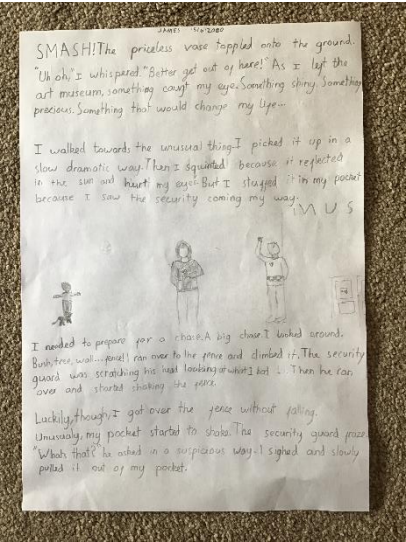 JAMES
SMASH! The priceless vase toppled onto the ground.
"Uh oh," I whispered. "Better get out of here!" As I left the
art museum, something caugt my eye. Something shiny. Something
precious. Something that would change my life...
I walked towards the unusual thing. I picked it up in a
slow dramatic way. Then I squinted because it reflected
in the sun and hurt my eye. But I stuffed it in my pocket
because I saw the security coming my way.
MUS
I needed to prepare for a chase. A big chase. I looked around.
Bush, tree, wall... fence! I ran over to the fence and climbed it. The security
guard was scratching his head looking at what I had Then he ran
over and started shaking the fence.
Luckily, though, I got over the fence without falling.
Unusualy, my pocket started to shake. The security guard froze.
"Whats that?" he asked in a suspicious way. I sighed and slowly
pulled it out of my pocket.